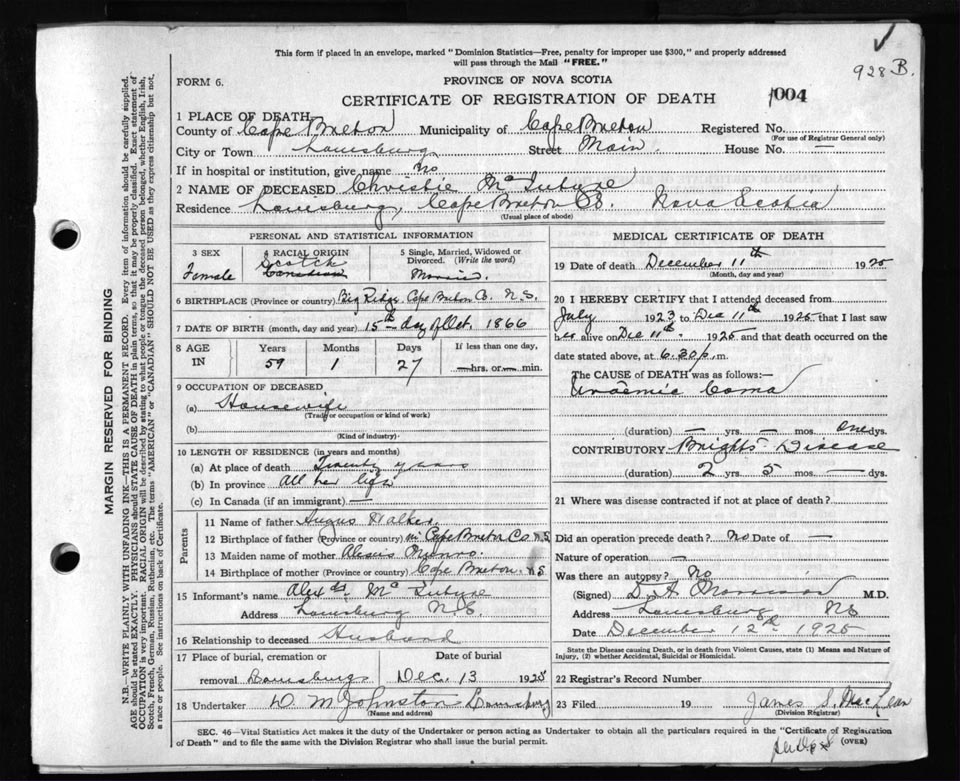 This form if placed in an envelope, marked "Dominion Statistics—Free, penalty for improper use $300," and properly addressed
will pass through the Mail "FREE."
928 B.
FORM 6.
PROVINCE OF NOVA SCOTIA
CERTIFICATE OF REGISTRATION OF DEATH 1004
1 PLACE OF DEATH
County of Cape Breton Municipality of Cape Breton Registered No.
(For use of Registrar General only)
City or Town Louisburg Street Main. House No. —
If in hospital or institution, give name no
2 NAME OF DECEASED Christie McIntyre
Residence Louisburg, Cape Breton Co. Nova Scotia
(Usual place of abode)
PERSONAL AND STATISTICAL INFORMATION
3 SEX Female
4 RACIAL ORIGIN Scotch Canadian
5 Single, Married, Widowed or Divorced. (Write the word) Married.
6 BIRTHPLACE (Province or country) Big Ridge, Cape Breton Co. N.S.
7 DATE OF BIRTH (month, day and year) 15th day of Oct. 1866
8 AGE IN Years Months Days If less than one day,
59 1 27 — hrs. or — min.
9 OCCUPATION OF DECEASED
(a) Housewife
(Trade, occupation or kind of work)
(b)
(Kind of industry)
10 LENGTH OF RESIDENCE (in years and months)
(a) At place of death Twenty years
(b) In province All her life
(c) In Canada (if an immigrant) —
Parents
11 Name of father Angus Walker.
12 Birthplace of father (Province or country) Cape Breton Co. N.S.
13 Maiden name of mother Munro.
14 Birthplace of mother (Province or country) Cape Breton N.S.
15 Informant's name Alex McIntyre
Address Louisburg N.S.
16 Relationship to deceased Husband
17 Place of burial, cremation or Date of burial
removal Louisburg Dec. 13 1925
18 Undertaker D. M. Johnston Louisburg
(Name and address)
MEDICAL CERTIFICATE OF DEATH
19 Date of death December 11th 1925
(Month, day and year)
20 I HEREBY CERTIFY that I attended deceased from
July 1923 to Dec 11th 1925 that I last saw
her alive on Dec 11th 1925 and that death occurred on the
date stated above, at 6.30 p.m.
The CAUSE OF DEATH was as follows:—
Uraemic Coma
(duration) — yrs. — mos. one dys.
CONTRIBUTORY Brights Disease
(duration) 2 yrs. 5 mos. — dys.
21 Where was disease contracted if not at place of death?
Did an operation precede death? no Date of —
Nature of operation —
Was there an autopsy? No
(Signed) D. A. Morrison M.D.
Address Louisburg NS
Date December 12th 1925
State the Disease causing Death, or in death from Violent Causes, state (1) Means and Nature of
Injury, (2) whether Accidental, Suicidal or Homicidal.
22 Registrar's Record Number
23 Filed 19 James S. MacLean
(Division Registrar)
SEC. 46—Vital Statistics Act makes it the duty of the Undertaker or person acting as Undertaker to obtain all the particulars required in the "Certificate of Registration
of Death" and to file the same with the Division Registrar who shall issue the burial permit. (OVER)
MARGIN RESERVED FOR BINDING
N.B.—WRITE PLAINLY WITH UNFADING INK—THIS IS A PERMANENT RECORD. Every item of information should be carefully supplied.
AGE should be stated EXACTLY. PHYSICIANS should STATE CAUSE OF DEATH in plain terms, so that it may be properly classified. Exact statement of
OCCUPATION is very important. RACIAL ORIGIN will be described by stating to what people or tongue the deceased person belonged, whether English, Irish,
Scotch, French, German, Russian, Ruthenian, etc. The terms "AMERICAN" or "CANADIAN" SHOULD NOT BE USED as they express citizenship but not
a race or people. See instructions on back of Certificate.